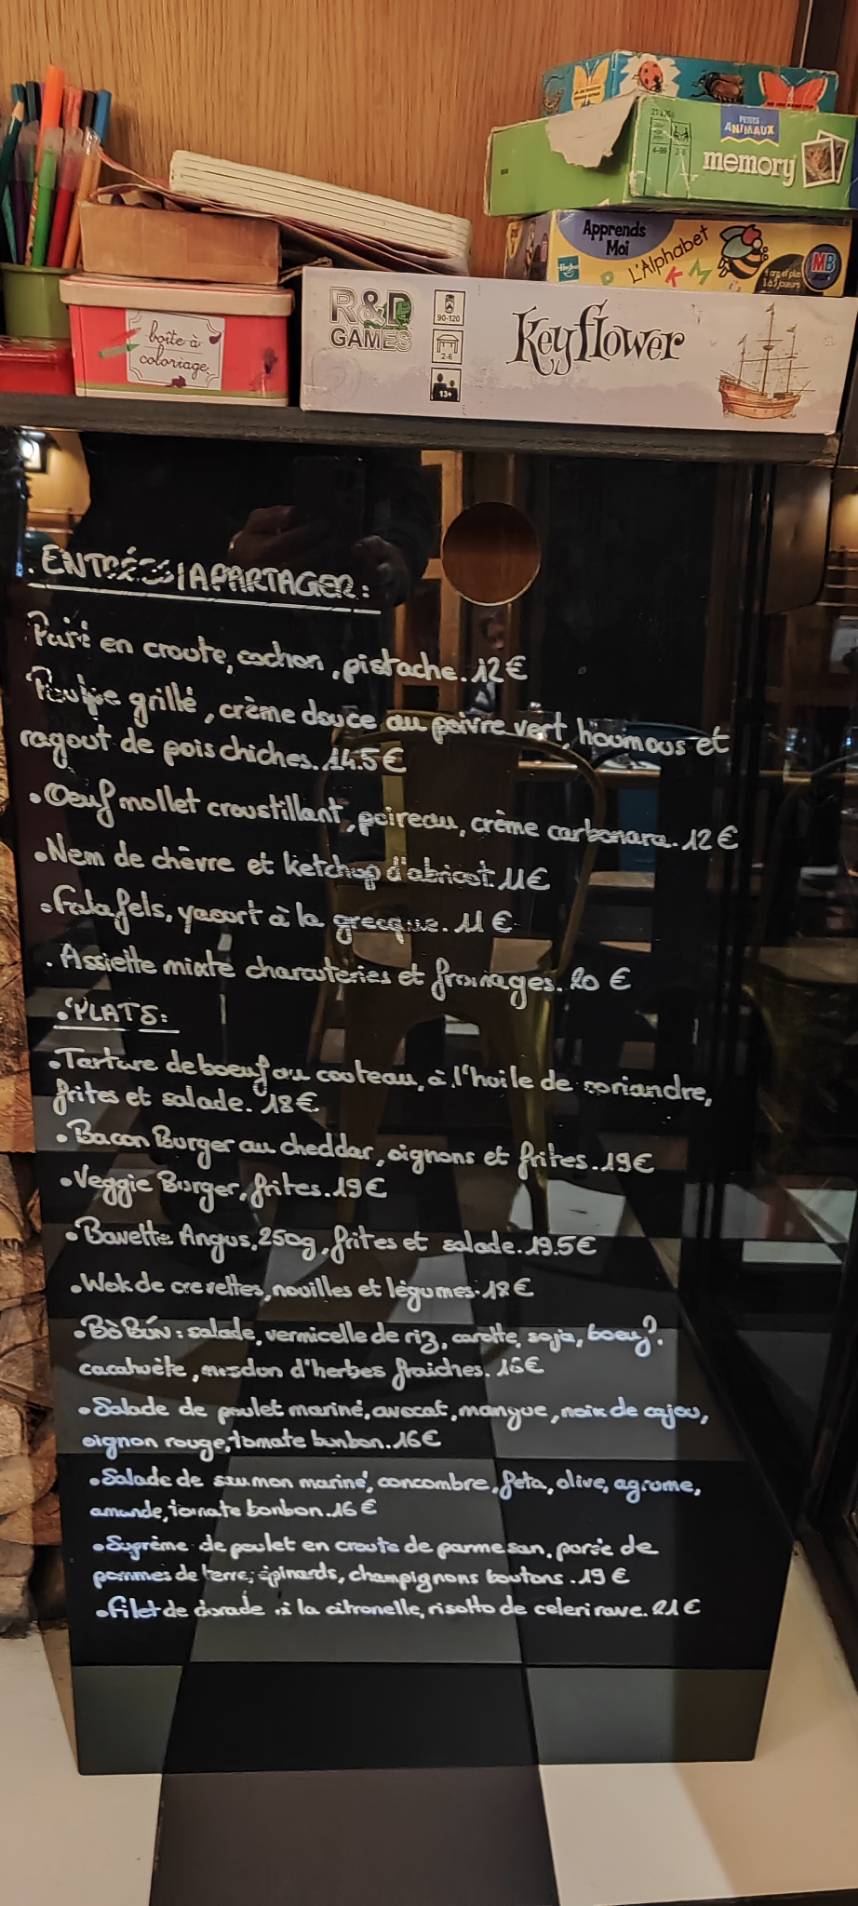 PETITS
ANIMAUX
memory
Apprends
Moi
L'Alphabet
Hasbro
MB
R&D
GAMES
90-120
2-6
13+
Keyflower
boîte à
coloriage
. ENTRÉES / A PARTAGER :
Paté en croute, cochon, pistache. 12€
Poulpe grillé, crème douce au poivre vert, houmous et
ragout de pois chiches. 14.5€
• Oeuf mollet croustillant, poireau, crème carbonara. 12€
• Nem de chèvre et ketchup d'abricot. 11€
• Falafels, yaourt à la grecque. 11€
. Assiette mixte charcuteries et fromages. 20€
• PLATS :
• Tartare de boeuf au couteau, à l'huile de coriandre,
frites et salade. 18€
• Bacon Burger au cheddar, oignons et frites. 19€
• Veggie Burger, frites. 19€
• Bavette Angus, 250g, frites et salade. 19.5€
• Wok de crevettes, nouilles et légumes. 18€
• Bò Bún : salade, vermicelle de riz, carotte, soja, boeuf,
cacahuète, herbes fraiches. 16€
• Salade de poulet mariné, avocat, mangue, noix de cajou,
oignon rouge, tomate bonbon. 16€
• Salade de saumon mariné, concombre, feta, olive, agrume,
amande, tomate bonbon. 16€
• Suprème de poulet en croute de parmesan, purée de
pommes de terre, épinards, champignons boutons. 19€
• Filet de dorade à la citronelle, risotto de celeri rave. 21€